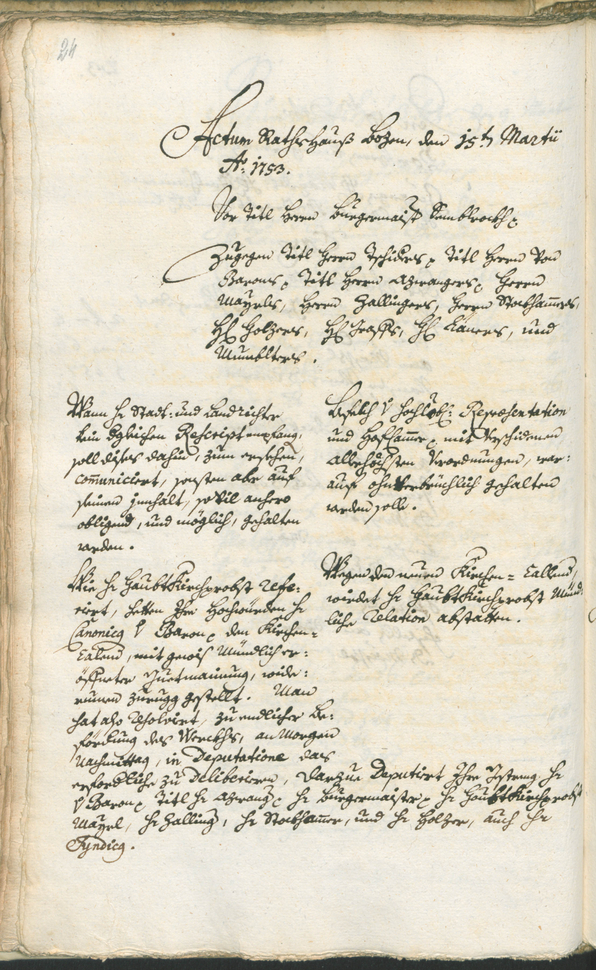 24
Actum Rathshauß Bozen, den 15tn Martii
Ao: 1753.
Vor Titl Herrn Burgermaister
Zugegen Titl Herrn Titl Herrn Von
Barons, Titl Herrn Azwangers, Herrn
Mayrls, Herrn Zallingers, Herrn Stockhamers,
Hl: Holzers, Hl: Grafls, Hl: und
Wann H: Statt: und Landrichter
ein dgleichen Rescript empfang,
soll dises dahin, zum ersechen,
comuniciert, sonsten aber auf
seinen Innhalt, sovil anhero
obligend, und möglich, gehalten
werden.
Befelch V Hochlobl: Repræsentation
und Hofkhamer, mit verschidenen
Allerhöchsten Verordnungen, war:
auf ohnverbrüchlich gehalten
werden solle.
Wie H: Haubtkirchprobst refe:
riert, hetten Ihro Hochwürden H:
Canonicg V Baron, den Kirchen=
Calend, mit gewis Mündlich er:
öffneter Guetmainung, wide:
rumen zurugg gestellt. Man
hat also resolvirt, zu endlicher Be:
förderung des Werckhs, an Morgen
Nachmittag, in Deputatione das
erforderliche zu Deliberieren, Darzue Deputiert Ihro Gestreng H:
V Baron, Titl H: Azwang, H: Burgermaister, H: Haubtkirchprobst
Mayrl, H: Zalling, H: Stockhamer, und H: Holzer, auch H:
Syndicg.
Wegen den neuen Kirchen= Callend,
wirdet H: Haubtkirchprobst Mind:
liche Relation abstatten.